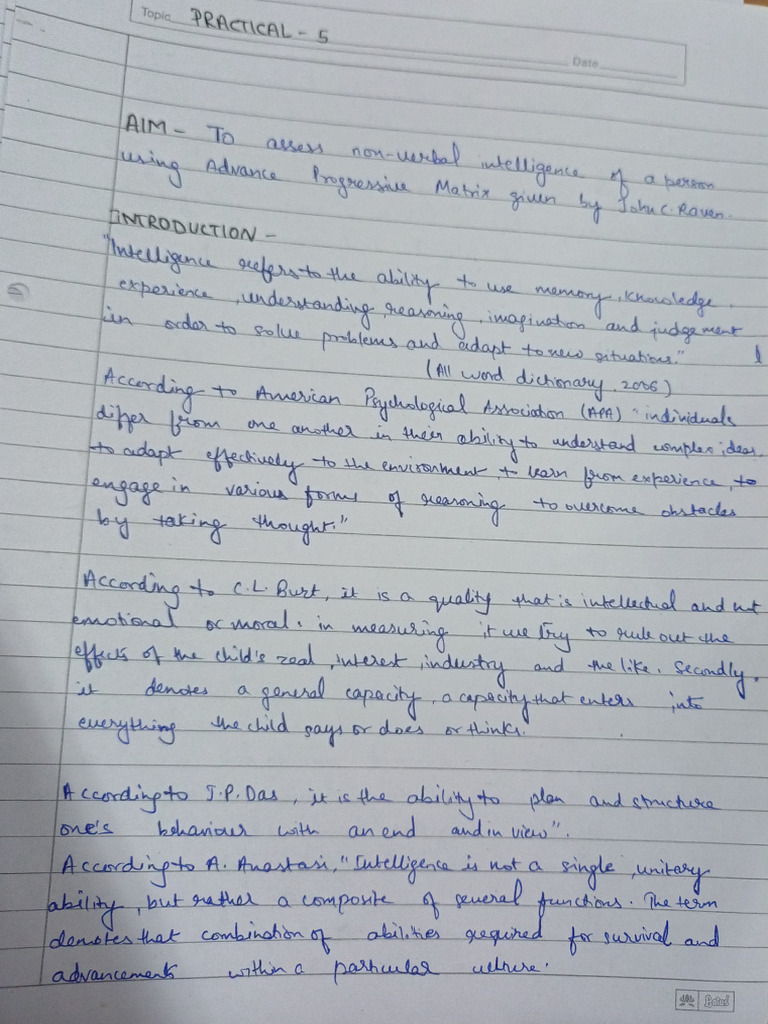 Topic PRACTICAL - 5
Date
AIM - To assess non-verbal intelligence of a person
using Advance Progressive Matrix given by John C. Raven.
INTRODUCTION -
"Intelligence refers to the ability to use memory, knowledge,
experience, understanding, reasoning, imagination and judgement
in order to solve problems and adapt to new situations."
(All word dictionary, 2006)
According to American Psychological Association (APA) "individuals
differ from one another in their ability to understand complex ideas,
to adapt effectively to the environment, to learn from experience, to
engage in various forms of reasoning to overcome obstacles
by taking thought."
According to C.L. Burt, it is a quality that is intellectual and not
emotional or moral. in measuring it we try to rule out the
effects of the child's zeal, interest, industry and the like. Secondly,
it denotes a general capacity, a capacity that enters into
everything the child says or does or thinks.
According to J.P. Das, it is the ability to plan and structure
one's behaviour with an end and in view".
According to A. Anastasi, "Intelligence is not a single, unitary
ability, but rather a composite of several functions. The term
denotes that combination of abilities required for survival and
advancements within a particular culture.